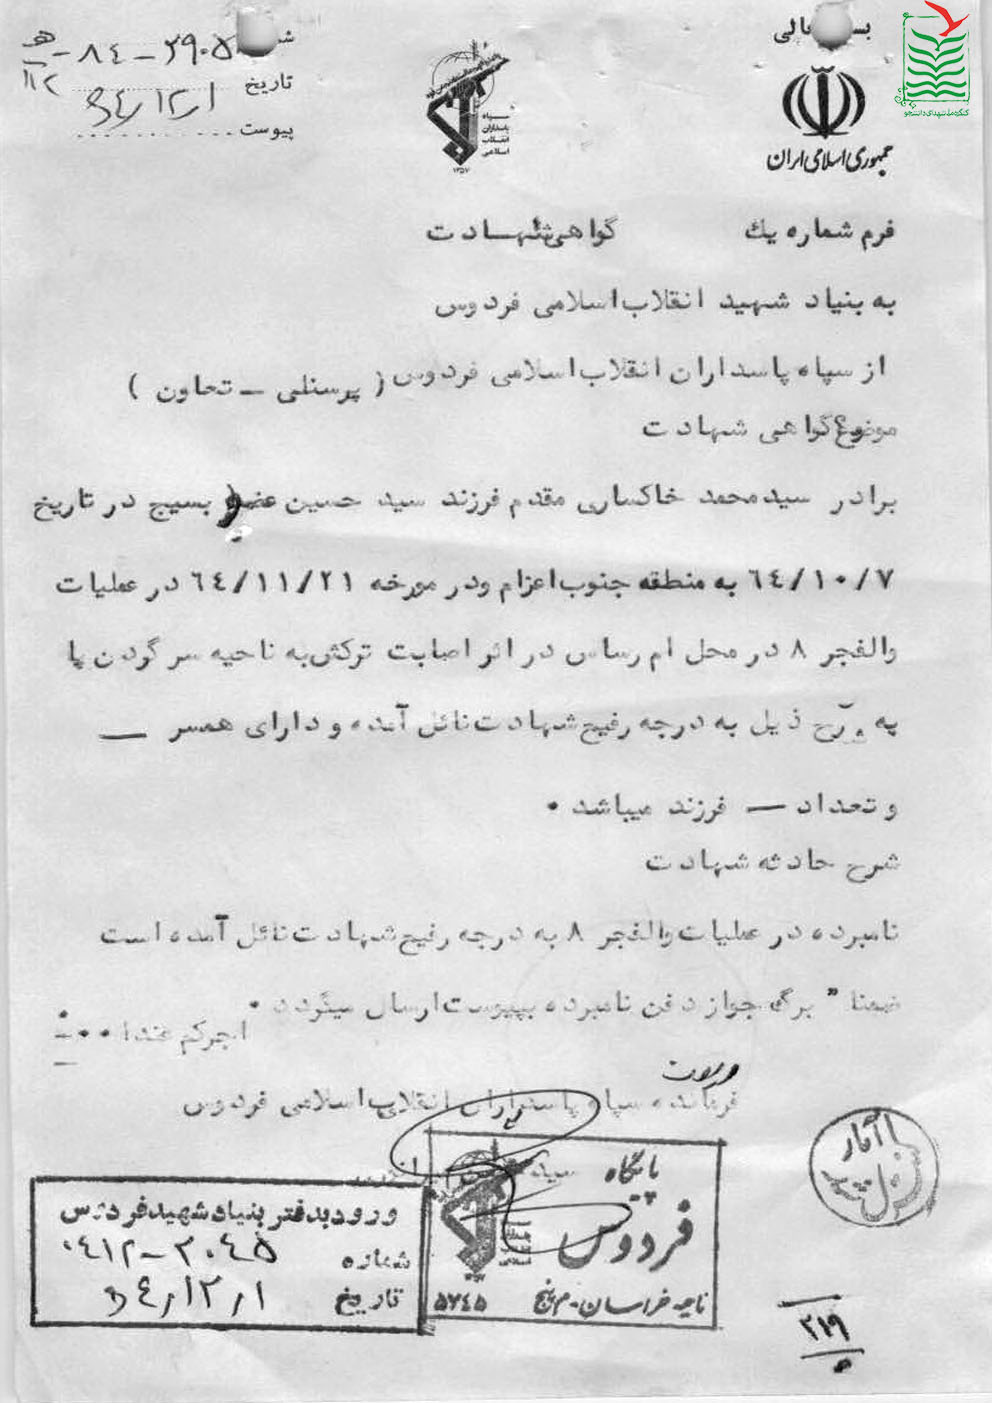 بسمه تعالی
کنگره ملی شهدای دانشجو
جمهوری اسلامی ایران
سپاه
پاسداران
انقلاب
اسلامی
۱۳۵۷
۲۹۰۵ - ۸٤ - هـ
تاریخ ۱ر۱۲ر
پیوست
فرم شماره یك گواهی شهادت
به بنیاد شهید انقلاب اسلامی فردوس
از سپاه پاسداران انقلاب اسلامی فردوس ( پرسنلی ــ تعاون )
موضوع گواهی شهادت
برادر سید محمد خاکساری مقدم فرزند سید حسین عضو بسیج در تاریخ
۶٤/۱۰/۷ به منطقه جنوب اعزام ودر مورخه ۶٤/۱۱/۲۱ در عملیات
والفجر ۸ در محل ام رساس در اثر اصابت ترکش به ناحیه سر گردن پا
به ذیل به درجه رفیع شهادت نائل آمده و دارای همسر —
و تعداد — فرزند میباشد .
شرح حادثه شهادت
نامبرده در عملیات والفجر ۸ به درجه رفیع شهادت نائل آمده است
ضمنا " برگ جواز دفن نامبرده بپیوست ارسال میگردد .
اجرکم عندا ...
فرمانده سپاه پاسداران انقلاب اسلامی فردوس
پایگاه
فردوس
ناحیه خراسان - م پنج ۵۷٤۵
ورود بدفتر بنیاد شهید فردوس
شماره ۲۰٤۵-۰٤۱۲
تاریخ ۱ر۱۲ر
آمار
۲۱۹
۵